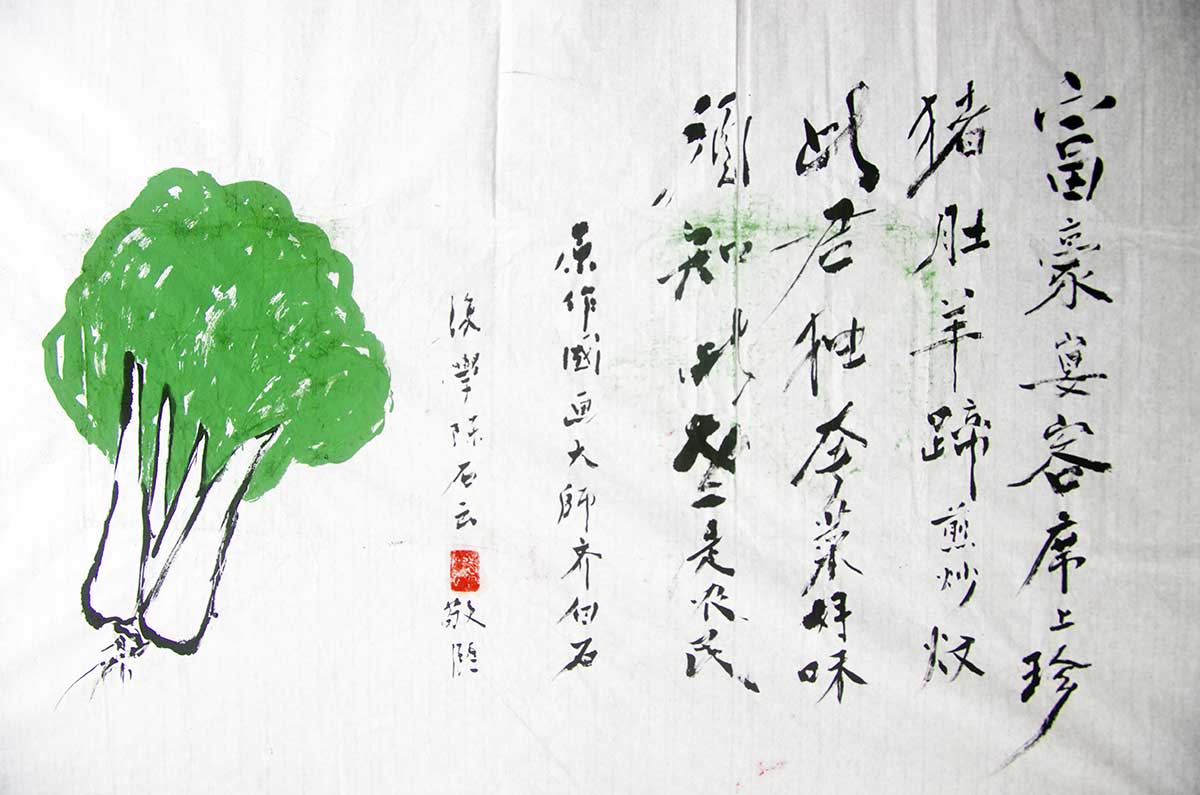 富豪宴客席上珍
猪肚羊蹄煎炒炆
此君独菜好味
須知此是农民
原作國画大師齐白石
後學陈石云敬題